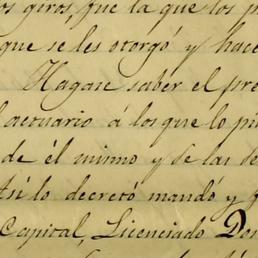 os giros, fue la que los p
que se les otorgó y hace
Hagase saber el pre
l actuario á los que lo pi
de él mismo y de las de
Así lo decretó mandó y
Capital, Licenciado Don